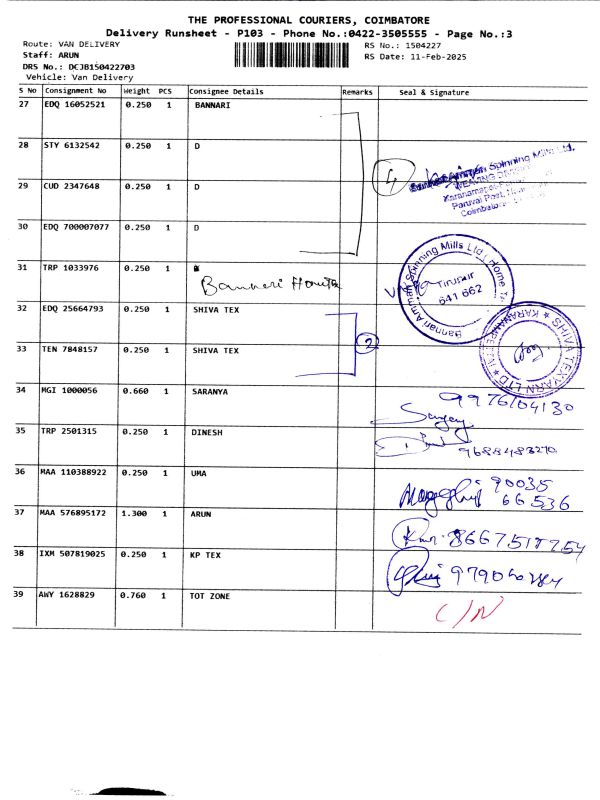 THE PROFESSIONAL COURIERS, COIMBATORE
Delivery Runsheet - P103 - Phone No.:0422-3505555 - Page No.:3
Route: VAN DELIVERY
RS No.: 1504227
Staff: ARUN
RS Date: 11-Feb-2025
DRS No.: DCJB150422703
Vehicle: Van Delivery
S No Consignment No Weight PCS Consignee Details Remarks Seal & Signature
27 EDQ 16052521 0.250 1 BANNARI
28 STY 6132542 0.250 1 D
4
Spinning Mills Ltd.
29 CUD 2347648 0.250 1 D
30 EDQ 700007077 0.250 1 D
31 TRP 1033976 0.250 1
Bannari
Bannari Amman Spinning Mills Ltd
Tirupur
641 662
32 EDQ 25664793 0.250 1 SHIVA TEX
2
33 TEN 7848157 0.250 1 SHIVA TEX
SHIVA TEXYARN LTD
34 MGI 1000056 0.660 1 SARANYA
9976104130
35 TRP 2501315 0.250 1 DINESH
9688483270
36 MAA 110388922 0.250 1 UMA
90035
66536
37 MAA 576895172 1.300 1 ARUN
38 IXM 507819025 0.250 1 KP TEX
39 AWY 1628829 0.760 1 TOT ZONE
C/N